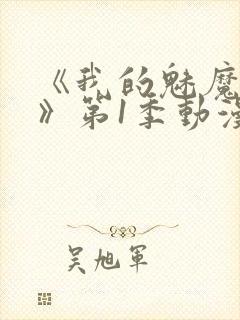 《我的魅魔
》第1季動漫
吴旭军